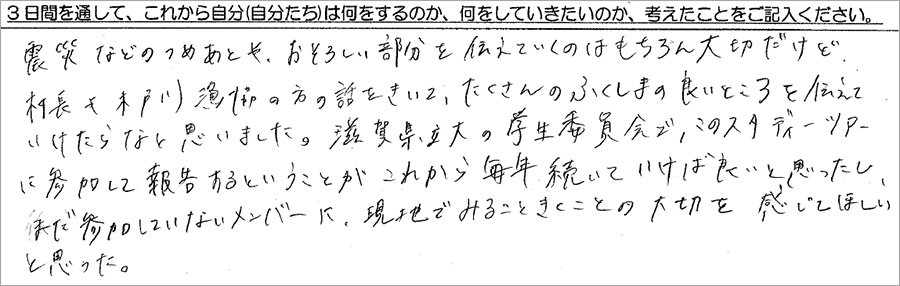 3日間を通して、これから自分(自分たち)は何をするのか、何をしていきたいのか、考えたことをご記入ください。
震災などのつめあとや、おそろしい部分を伝えていくのはもちろん大切だけど、
村長や木戸川漁協の方の話をきいて、たくさんのふくしまの良いところを伝えて
いけたらなと思いました。滋賀県立大の学生委員会で、このスタディーツアー
に参加して報告するということがこれから毎年続いていけば良いと思ったし、
まだ参加していないメンバーに、現地でみることきくことの大切を感じてほしい
と思った。